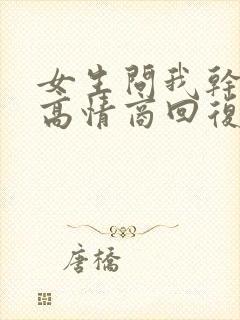 女生問我幹
高情商回復
唐橋